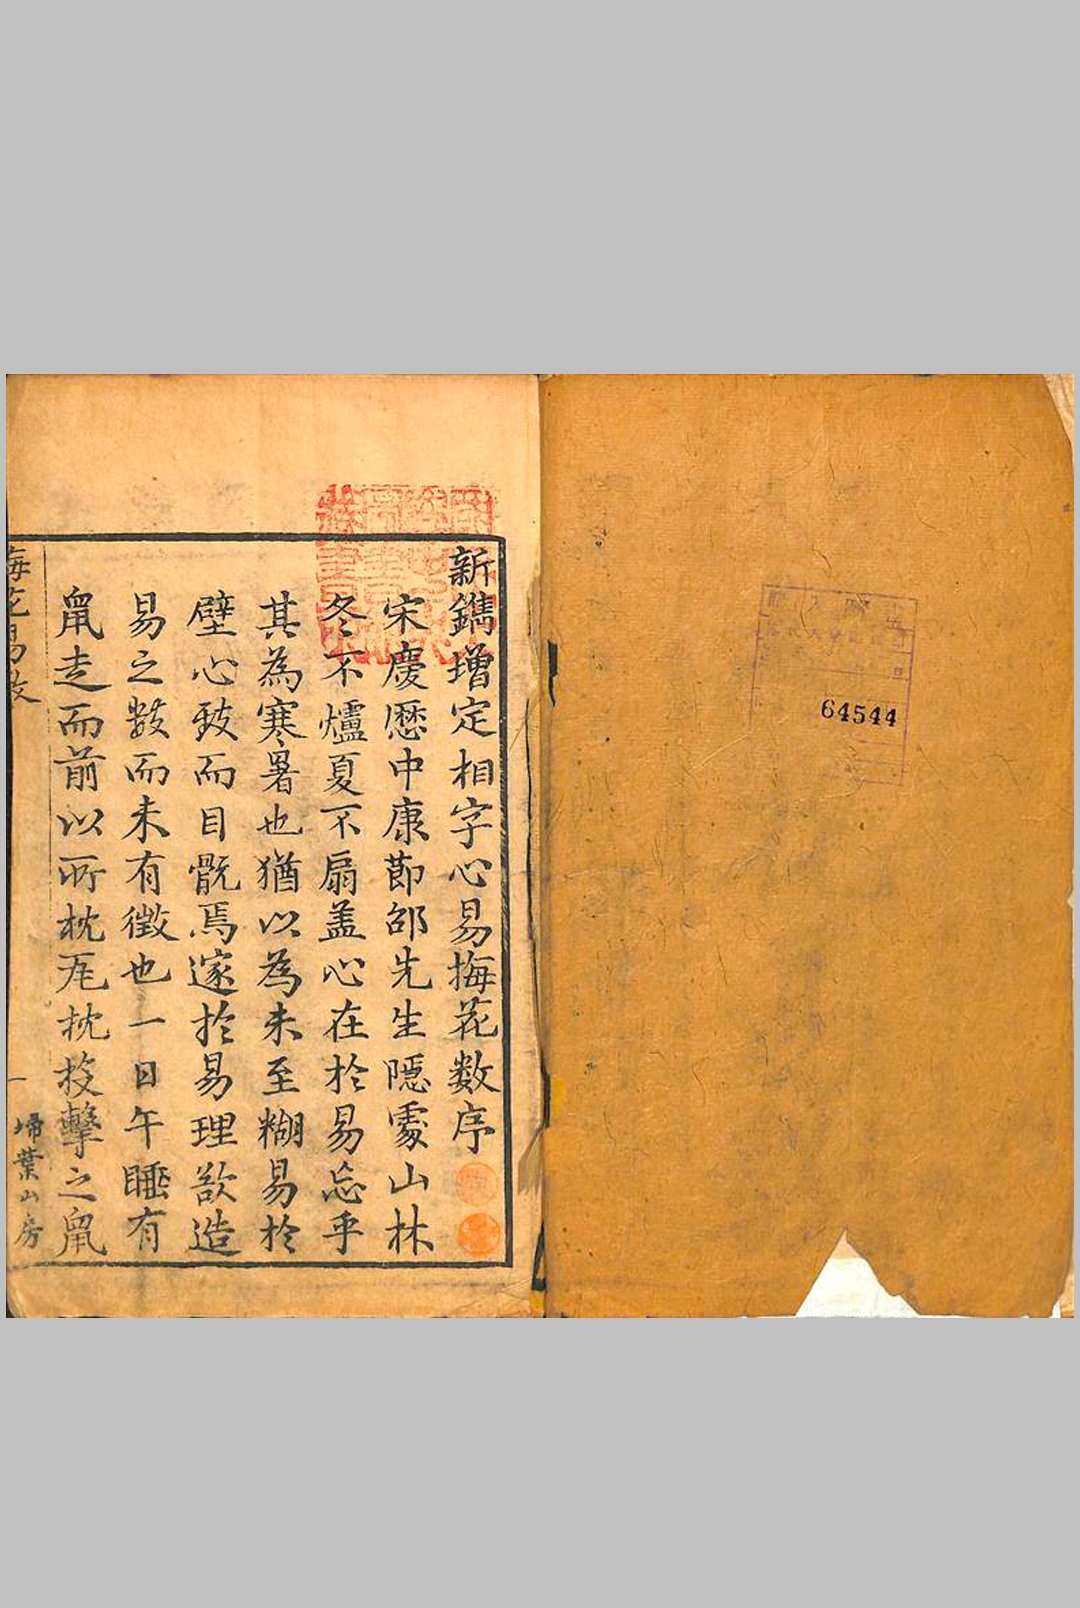 64544
新鐫增定相字心易梅花数序
宋慶歷中康節邵先生隱處山林
冬不爐夏不扇盖心在於易忘乎
其為寒暑也猶以為未至糊易於
壁心致而目骩焉邃於易理欲造
易之数而未有徵也一日午睡有
鼠走而前以所枕瓦枕投擊之鼠
梅花易数
一
埽葉山房